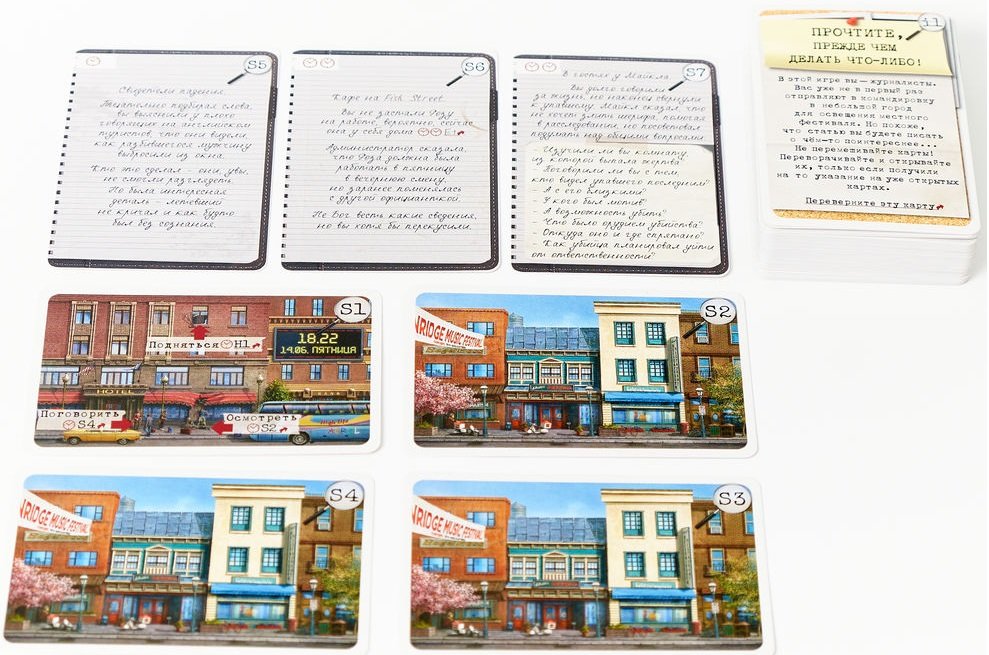 S5
Свидетели падения.
Тщательно подбирая слова,
вы выяснили у плохо
говорящих на английском
туристов, что они видели,
как разбившегося мужчину
выбросили из окна.
Кто это сделал – они, увы,
не смогли разглядеть.
Но была интересная
деталь – летевший
не кричал и как будто
был без сознания.
S6
Кафе на Fish Street
Вы не застали Розу
на работе, вероятно, сейчас
она у себя дома E1
Администратор сказала,
что Роза должна была
работать в пятницу
в вечернюю смену,
но заранее поменялась
с другой официанткой.
Не Бог весть какие сведения,
но вы хотя бы перекусили.
S7
В гостях у Майкла.
Вы долго говорили
за жизнь, но наконец свернули
к упавшему. Майкл сказал, что
не хочет злить шерифа, помогая
в расследовании, но посоветовал
подумать над общими вопросами
- Изучили ли вы комнату,
из которой выпала жертва?
- Поговорили ли вы с тем,
кто видел упавшего последним?
- А с его близкими?
- У кого был мотив?
- А возможность убить?
- Что было орудием убийства?
- Откуда оно и где спрятано?
- Как убийца планировал уйти
от ответственности?
i1
ПРОЧТИТЕ,
ПРЕЖДЕ ЧЕМ
ДЕЛАТЬ ЧТО-ЛИБО!
В этой игре вы – журналисты.
Вас уже не в первый раз
отправляют в командировку
в небольшой город
для освещения местного
фестиваля. Но похоже,
что статью вы будете писать
о чём-то поинтереснее...
Не перемешивайте карты!
Переворачивайте и открывайте
их, только если получили
на то указание на уже открытых
картах.
Переверните эту карту
S1
18.22
14.06. ПЯТНИЦА
Подняться H1
HOTEL
Поговорить
S4
Осмотреть
S2
S2
NRIDGE MUSIC FESTIVAL
S4
NRIDGE MUSIC FESTIVAL
S3
NRIDGE MUSIC FESTIVAL